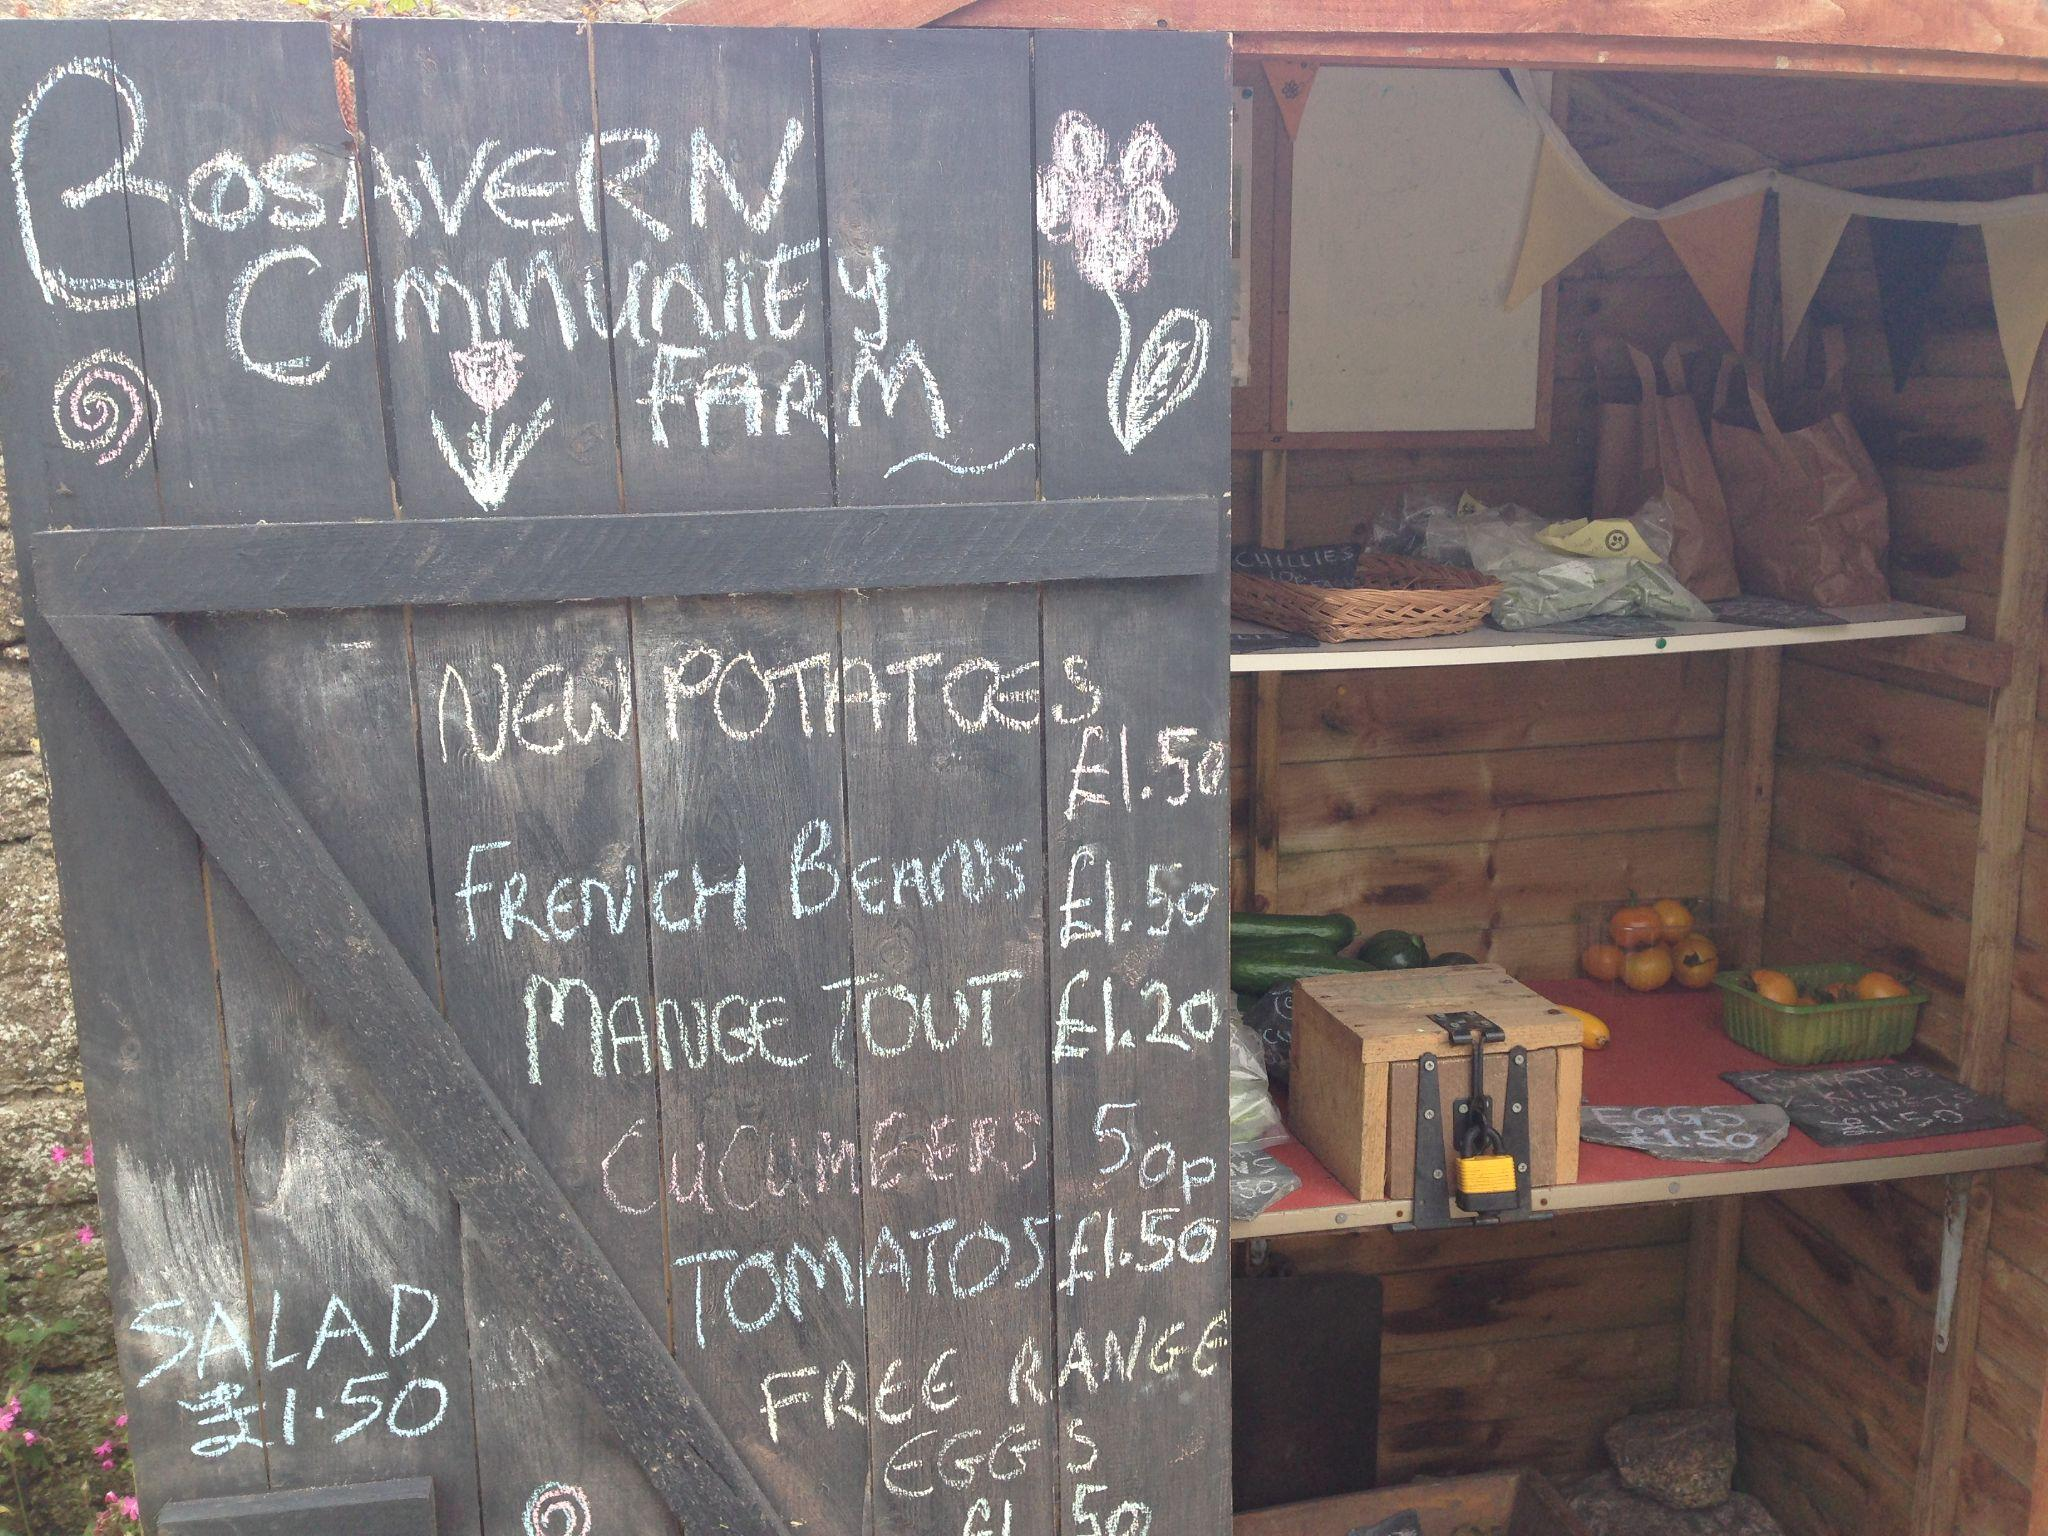 BOSAVERN
COMMUNITY
FARM
NEW POTATOES
£1.50
FRENCH BEANS £1.50
MANGE TOUT £1.20
CUCUMBERS 50p
TOMATOS £1.50
FREE RANGE
EGGS
£1.50
SALAD
£1.50
CHILLIES
10p EACH
EGGS
£1.50
TOMATOES
£1.50